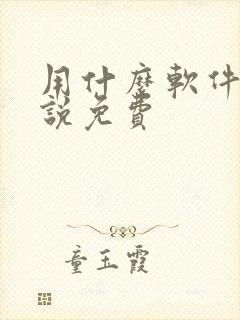 用什麼軟件
說免費
童玉霞